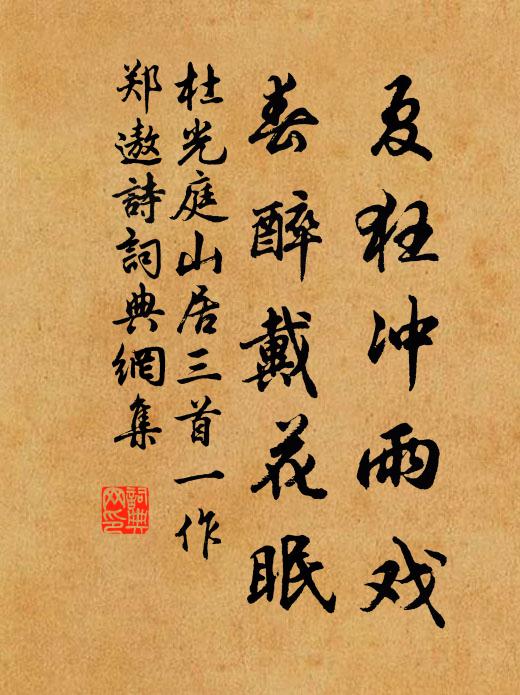 夏狂冲雨戏
春醉戴花眠
杜光庭山居三首一作
郑遨詩詞典網集
詞典网印